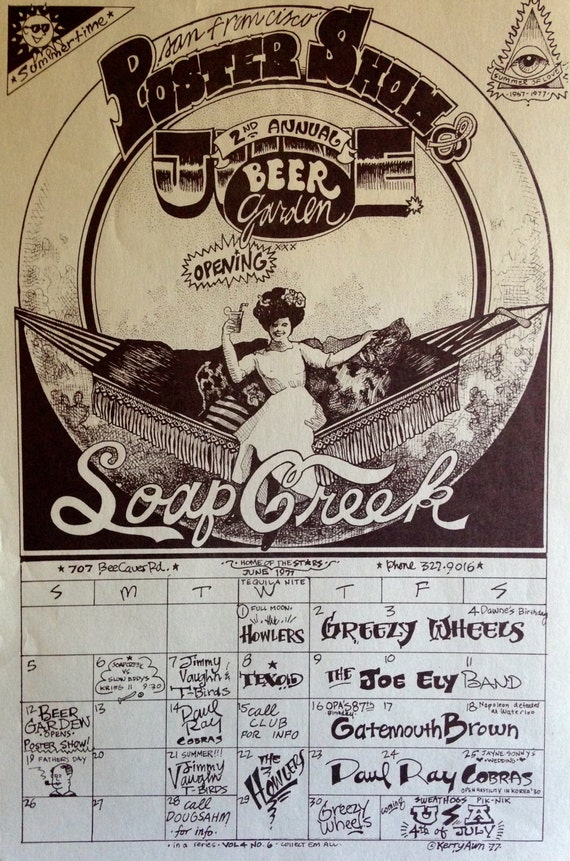 Summertime
san francisco
POSTER SHOW &
SUMMER OF LOVE
-1967-1977-
2ND ANNUAL
JUNE
BEER
garden
xxx
OPENING
Soap Creek
* 707 Bee Caves Rd. *
HOME OF THE STARS
JUNE 1977
* phone 327-9016 *
S M T W T F S
TEQUILA NITE
1 FULL MOON
the
HOWLERS
2 3 4 Dawne's Birthday
GREEZY WHEELS
5
6 SOAP CREEK
VS
SLOW BOYS
KRIEG II 9:30
7 Jimmy
Vaughn &
T-Birds
8
TEXOID
9 10 11
THE JOE ELY BAND
12 BEER
GARDEN
OPENS
POSTER SHOW!
13
14 Paul
Ray
COBRAS
15 call
CLUB
FOR INFO
16 OPA'S 87th
Birthday
17
18 Napoleon defeated
at Waterloo
Gatemouth Brown
19 FATHERS DAY
20
21 SUMMER!!!
Jimmy
Vaughn
T-BIRDS
22 THE
HOWLERS
23 24 25 JAYNE & SONNY'S
WEDDING
Paul Ray COBRAS
OPEN HOSTILITY IN KOREA '50
26
27
28 call
DOUG SAHM
-for info-
29
30
Greezy
Wheels
coming
SWEATHOGS PIK-NIK
USA
4th of JULY
- in a series - VOL 4 NO. 6 - COLLECT EM ALL -
© Kerry Awn 77